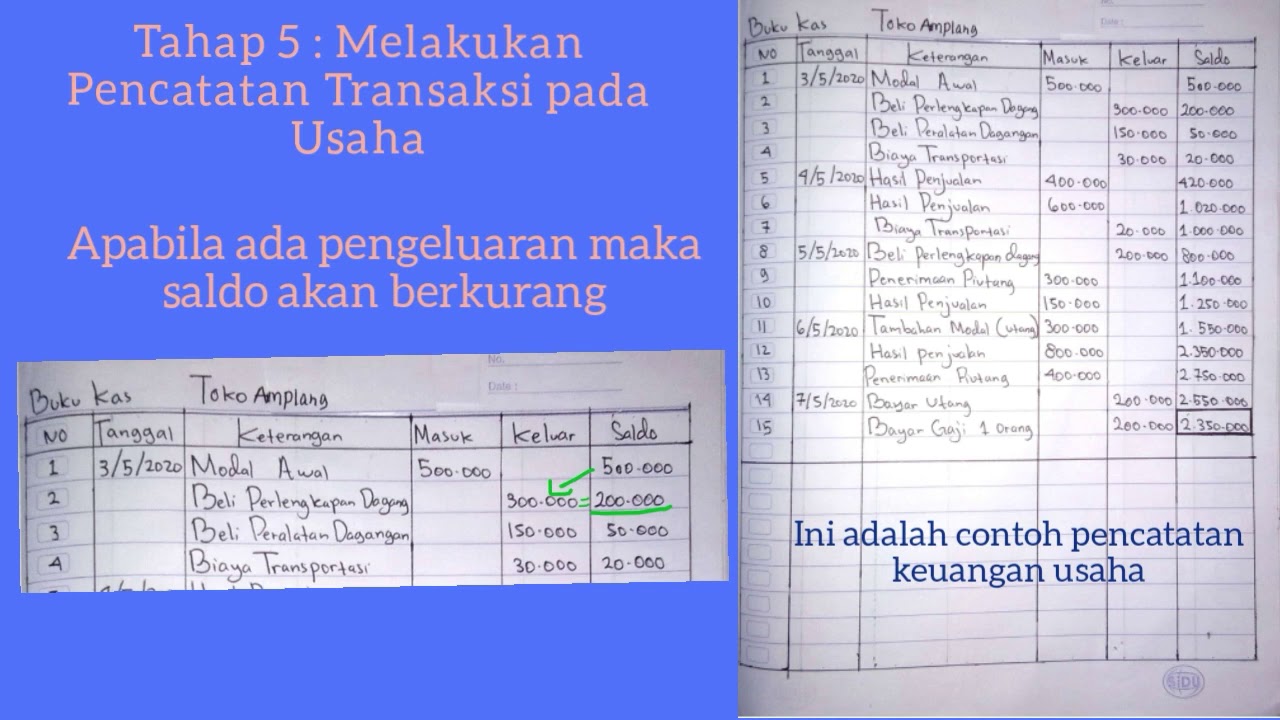 Tahap 5 : Melakukan
Pencatatan Transaksi pada
Usaha
Apabila ada pengeluaran maka
saldo akan berkurang
No.
Date :
Buku Kas Toko Amplang
NO Tanggal Keterangan Masuk Keluar Saldo
1 3/5/2020 Modal Awal 500.000 500.000
2 Beli Perlengkapan Dagang 300.000 = 200.000
3 Beli Peralatan Dagangan 150.000 50.000
4 Biaya Transportasi 30.000 20.000
Date :
Buku Kas Toko Amplang
NO Tanggal Keterangan Masuk Keluar Saldo
1 3/5/2020 Modal Awal 500.000 500.000
2 Beli Perlengkapan Dagang 300.000 200.000
3 Beli Peralatan Dagangan 150.000 50.000
4 Biaya Transportasi 30.000 20.000
5 4/5/2020 Hasil Penjualan 400.000 420.000
6 Hasil Penjualan 600.000 1.020.000
7 Biaya Transportasi 20.000 1.000.000
8 5/5/2020 Beli Perlengkapan dagang 200.000 800.000
9 Penerimaan Piutang 300.000 1.100.000
10 Hasil Penjualan 150.000 1.250.000
11 6/5/2020 Tambahan Modal (utang) 300.000 1.550.000
12 Hasil penjualan 800.000 2.350.000
13 Penerimaan Piutang 400.000 2.750.000
14 7/5/2020 Bayar Utang 200.000 2.550.000
15 Bayar Gaji 1 Orang 200.000 2.350.000
Ini adalah contoh pencatatan
keuangan usaha
SIDU